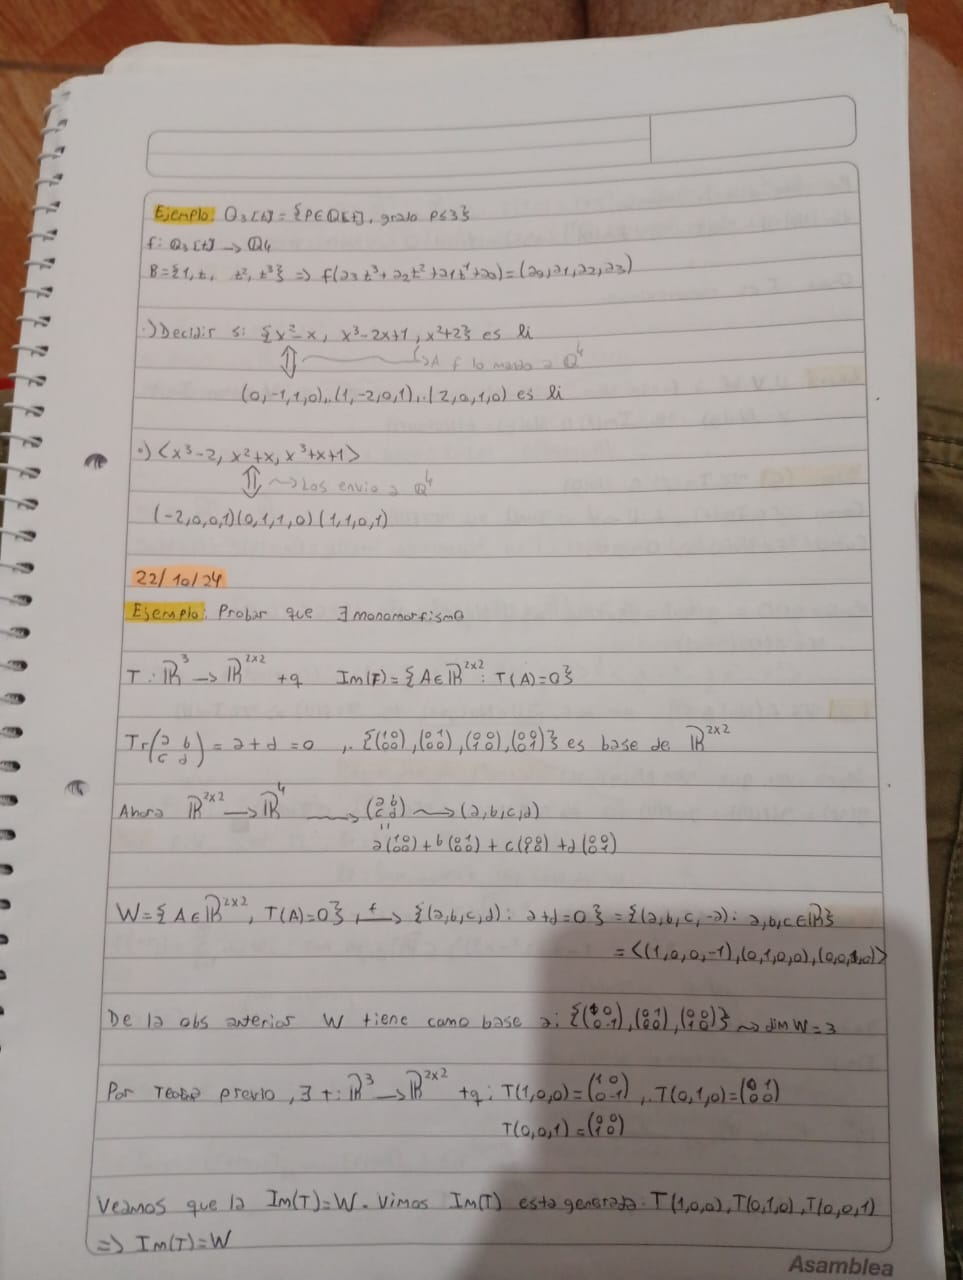 Ejemplo: Q₃[t] = {P∈Q[t], grado P≤3}
f: Q₃[t] → Q4
B={1,t, t², t³} => f(a3t³+a2t²+a1t¹+a0)=(a0,a1,a2,a3)
·)Decidir si {x²-x, x³-2x+1, x²+2} es li
⇕ A f lo mando a Q⁴
(0,-1,1,0),(1,-2,0,1),(2,0,1,0) es li
·) <x³-2, x²+x, x³+x+1>
⇕ ⇝ Los envio a Q⁴
(-2,0,0,1)(0,1,1,0)(1,1,0,1)
22/10/24
Ejemplo: Probar que ∃ monomorfismo
T: ℝ³ → ℝ²ˣ² tq Im(F)={A∈ℝ²ˣ²: T(A)=0}
Tr(a b / c d) = a+d=0 , {(1 0 / 0 0),(0 1 / 0 0),(0 0 / 1 0),(0 0 / 0 1)} es base de ℝ²ˣ²
Ahora ℝ²ˣ² → ℝ⁴ ⇝ (a b / c d) ⇝ (a,b,c,d)
"
a(1 0 / 0 0)+b(0 1 / 0 0)+c(0 0 / 1 0)+d(0 0 / 0 1)
W={A∈ℝ²ˣ², T(A)=0}, f→ {(a,b,c,d): a+d=0}={(a,b,c,-a): a,b,c∈ℝ}
=<(1,0,0,-1),(0,1,0,0),(0,0,1,0)>
De la obs anterior W tiene como base a: {(1 0 / 0 -1),(0 1 / 0 0),(0 0 / 1 0)} ⇝ dim W=3
Por previo, ∃ t: ℝ³ → ℝ²ˣ² tq: T(1,0,0)=(1 0 / 0 -1), T(0,1,0)=(0 1 / 0 0)
T(0,0,1)=(0 0 / 1 0)
Veamos que la Im(T)=W. Vimos Im(T) esta generada: T(1,0,0),T(0,1,0),T(0,0,1)
=> Im(T)=W
Asamblea